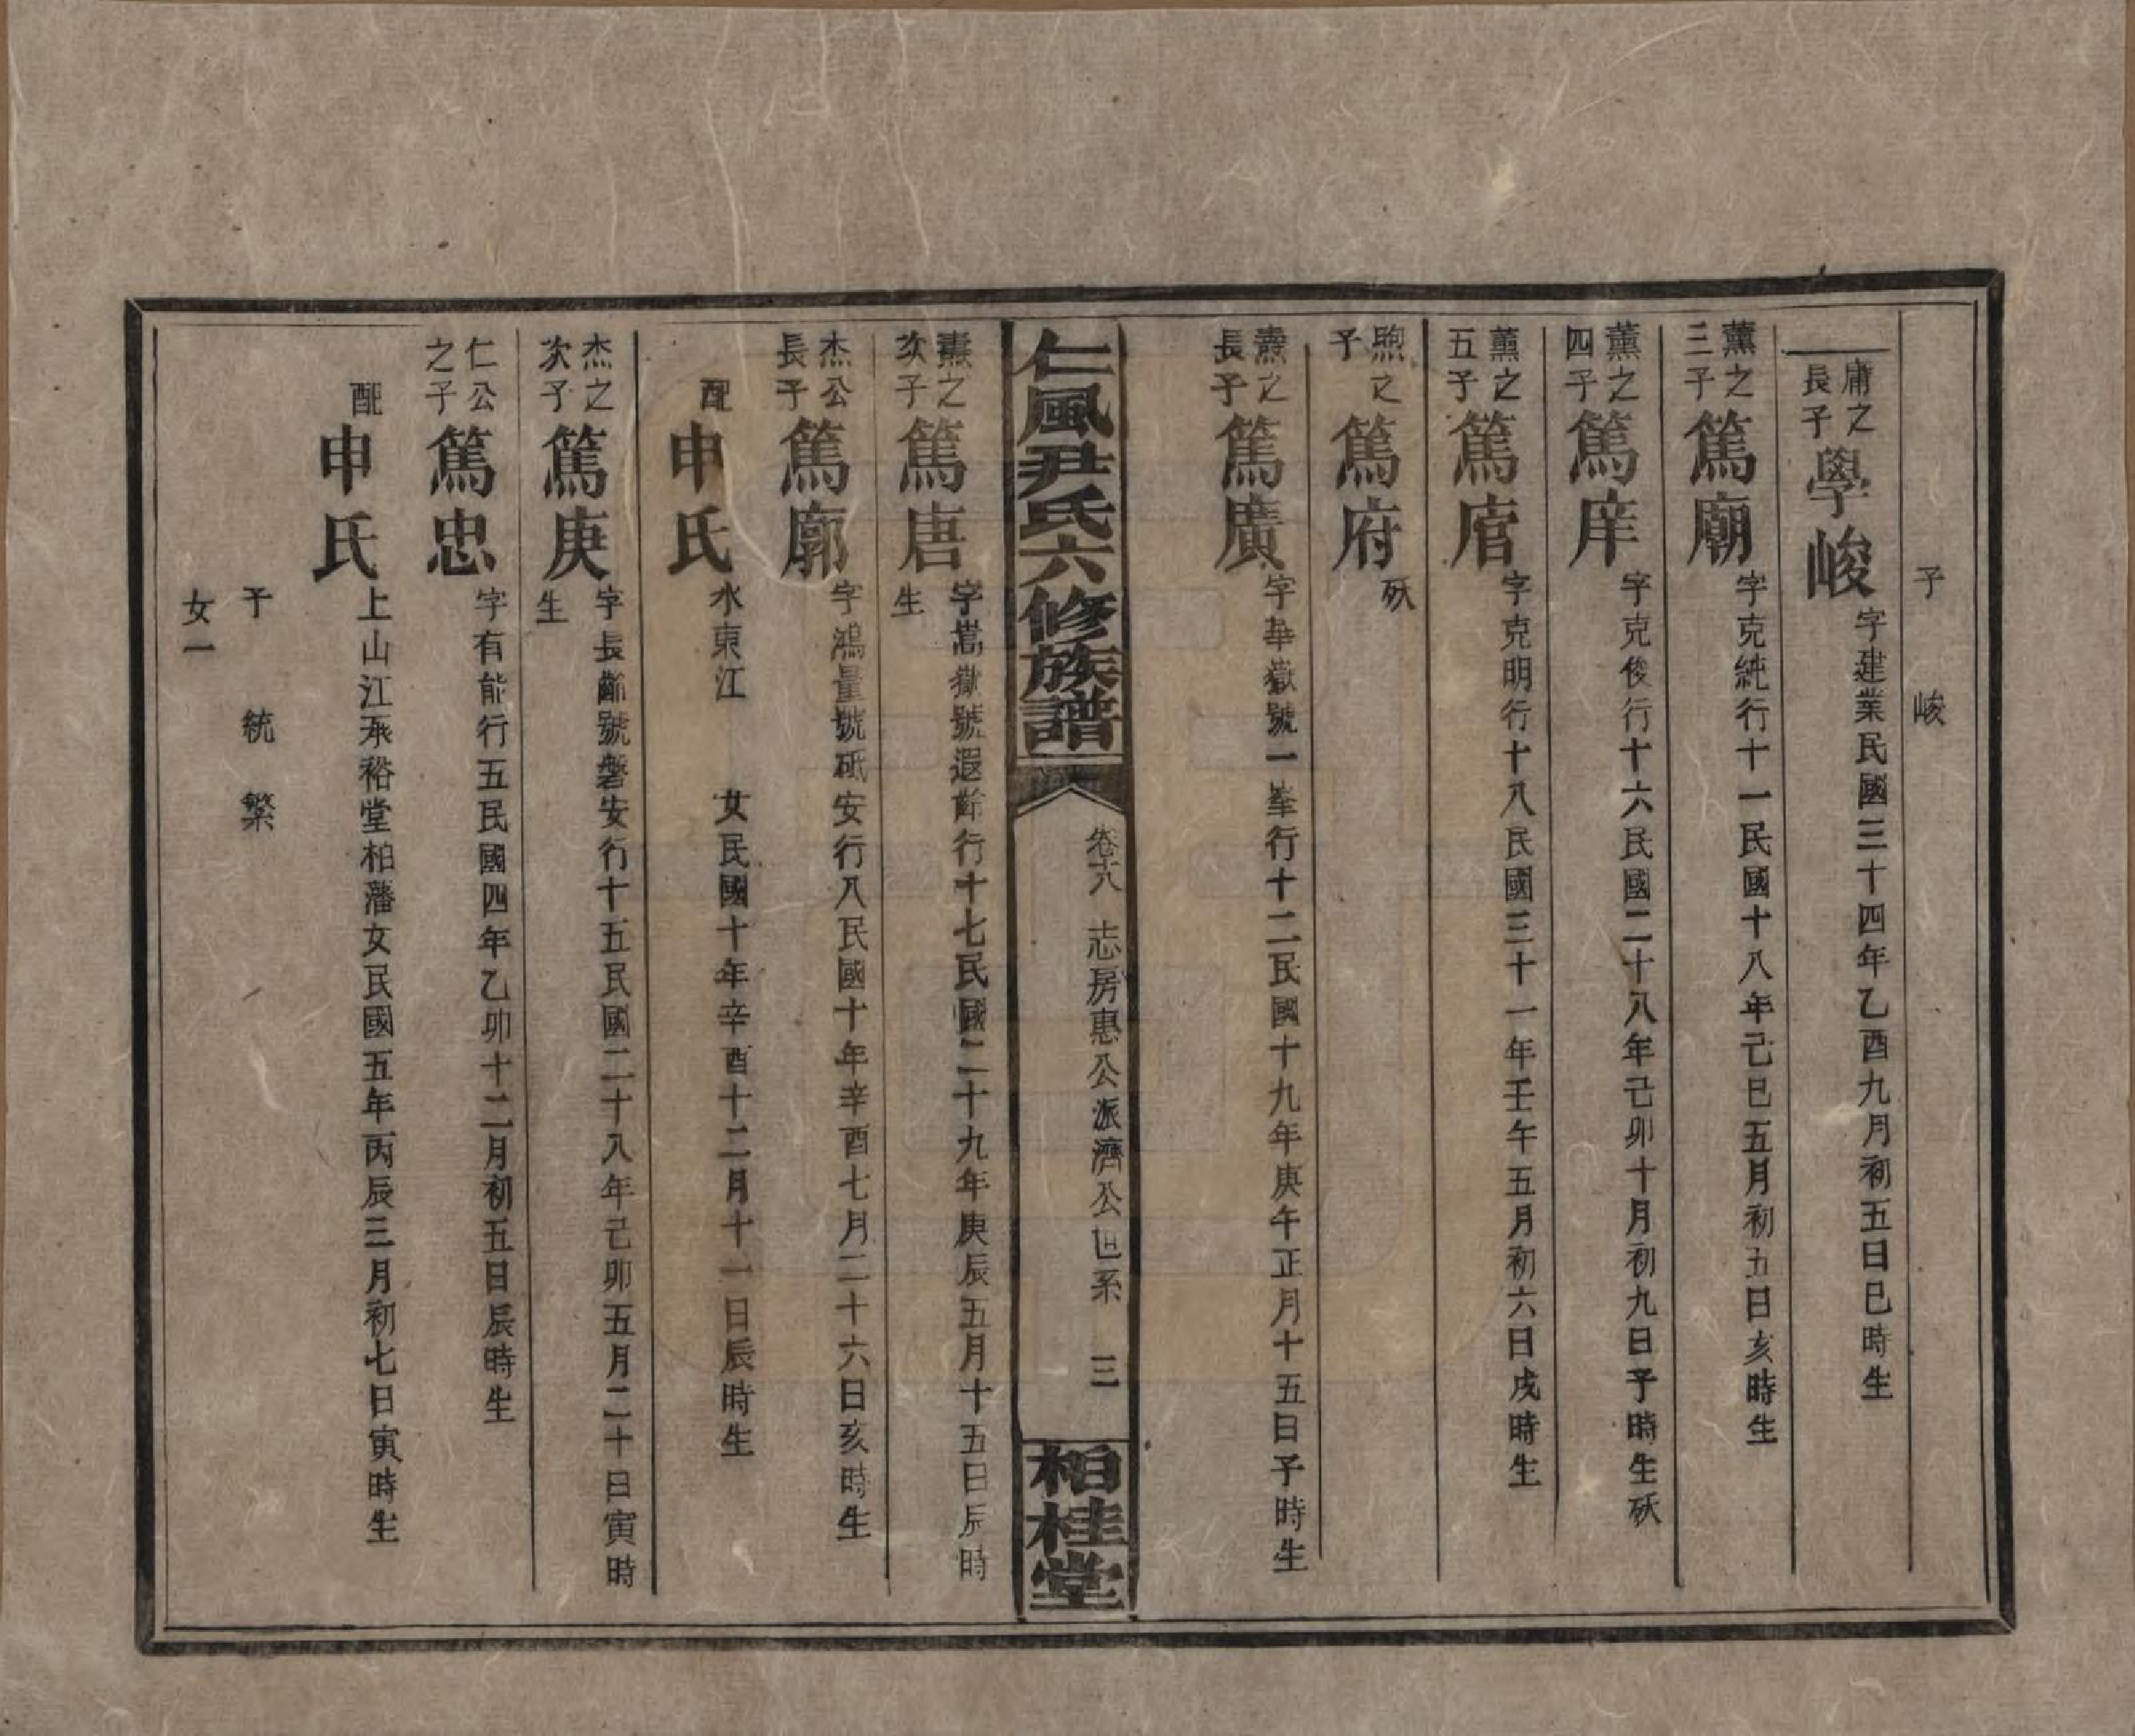 子　峻
庸之長子　學峻　字建業民國三十四年乙酉九月初五日巳時生
薰之三子　篤廟　字克純行十一民國十八年己巳五月初五日亥時生
薰之四子　篤庠　字克俊行十六民國二十八年己卯十月初九日子時生殀
薰之五子　篤㢈　字克明行十八民國三十一年壬午五月初六日戌時生
煦之子　篤府　殀
燾之長子　篤廣　字華嶽號一峯行十二民國十九年庚午正月十五日子時生
仁風尹氏六修族譜　卷十八　志房惠公派濟公世系　三　柏桂堂
燾之次子　篤唐　字嵩嶽號遐齡行十七民國二十九年庚辰五月十五日辰時
生
杰公長子　篤廓　字鴻量號砥安行八民國十年辛酉七月二十六日亥時生
配　申氏　水東江　女民國十年辛酉十二月十一日辰時生
杰之次子　篤庚　字長齡號磐安行十五民國二十八年己卯五月二十日寅時
生
仁公之子　篤忠　字有能行五民國四年乙卯十二月初五日辰時生
配　申氏　上山江承裕堂柏藩女民國五年丙辰三月初七日寅時生
子　統繁
女一